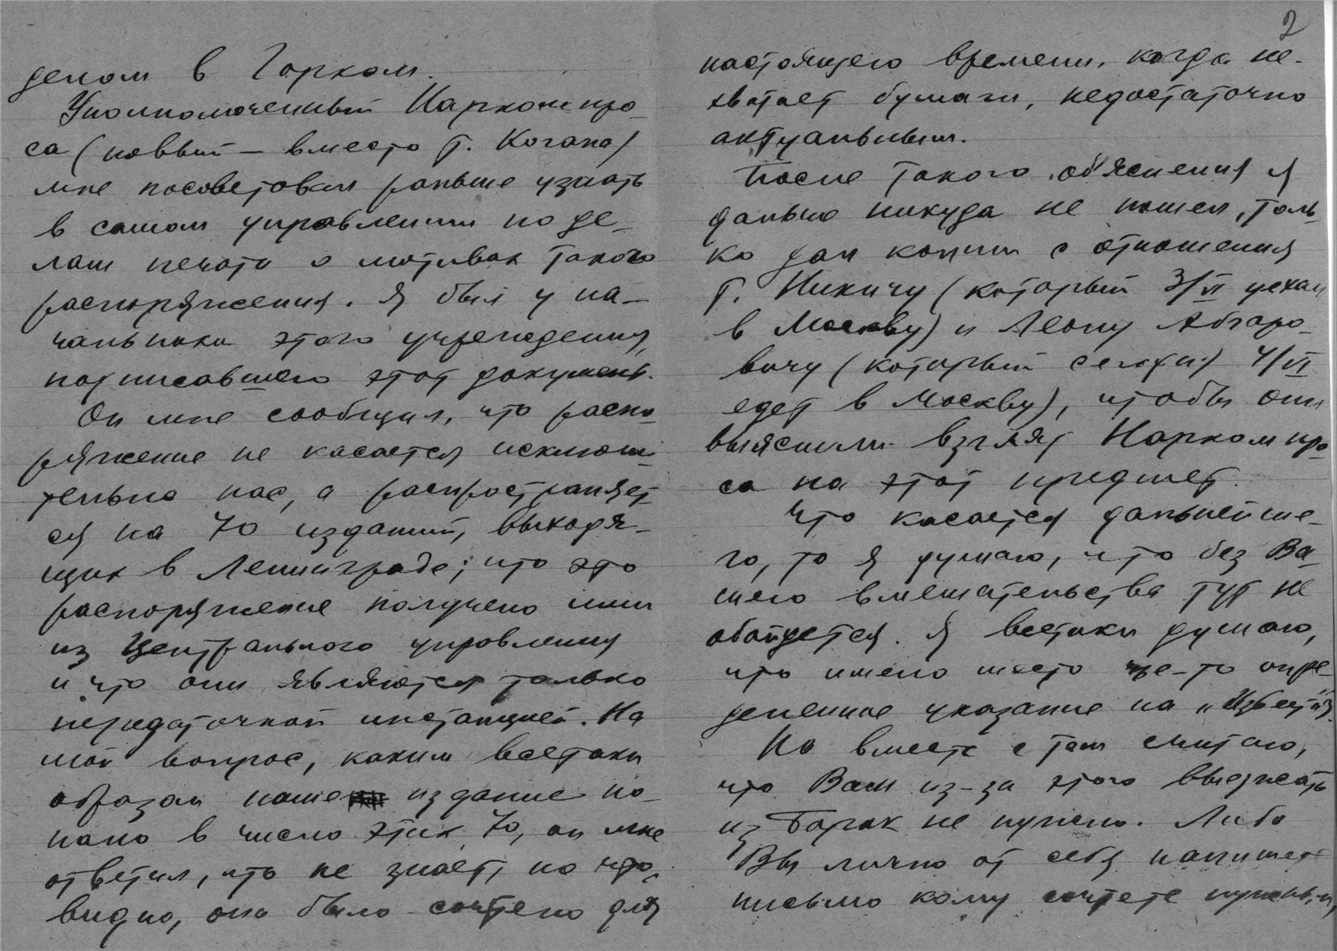 2
делом в Горком.
Уполномоченный Наркомпро-
са (новый — вместо т. Когана)
мне посоветовал раньше узнать
в самом управлении по де-
лам печати о мотивах такого
распоряжения. Я был у на-
чальника этого учреждения,
подписавшего этот документ.
Он мне сообщил, что распо-
ряжение не касается исключи-
тельно нас, а распространяет-
ся на 70 изданий, выходя-
щих в Ленинграде; что это
распоряжение получено ими
из Центрального управления
и что они являются только
передаточной инстанцией. На
мой вопрос, каким всетаки
образом наше издание по-
пало в число этих 70, он мне
ответил, что не знает, но что,
видно, оно было сочтено для
настоящего времени, когда не-
хватает бумаги, недостаточно
актуальным.
После такого об'яснения я
дальше никуда не пошел, толь-
ко дал копии с отношения
т. Никичу (который 3/VI уехал
в Москву) и Леону Абгаро-
вичу (который сегодня 4/VI
едет в Москву), чтобы они
выяснили взгляд Наркомпро-
са на этот предмет.
Что касается дальнейше-
го, то я думаю, что без Ва-
шего вмешательства тут не
обойдется. Я всетаки думаю,
что имело место где-то опре-
деленное указание на „Извест."
Но вместе с тем считаю,
что Вам из-за этого выезжать
из Борок не нужно. Либо
Вы лично от себя напишете
письмо кому сочтете нужным,